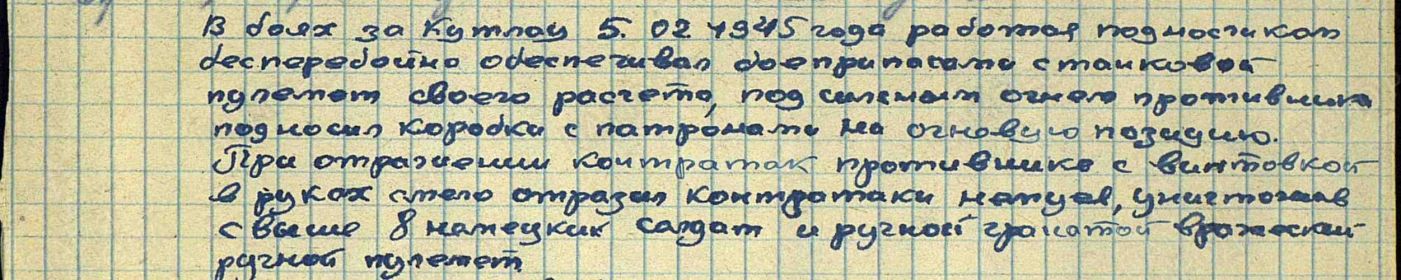 В боях за Кутлау 5. 02 1945 года работая подносчиком
бесперебойно обеспечивал боеприпасами станковой
пулемет своего расчета, под сильным огнем противника
подносил коробки с патронами на огновую позицию.
При отражении контратак противника с винтовкой
в руках смело отразил контратаки немцев, уничтожив
свыше 8 немецких солдат и ручной гранатой вражеский
ручной пулемет